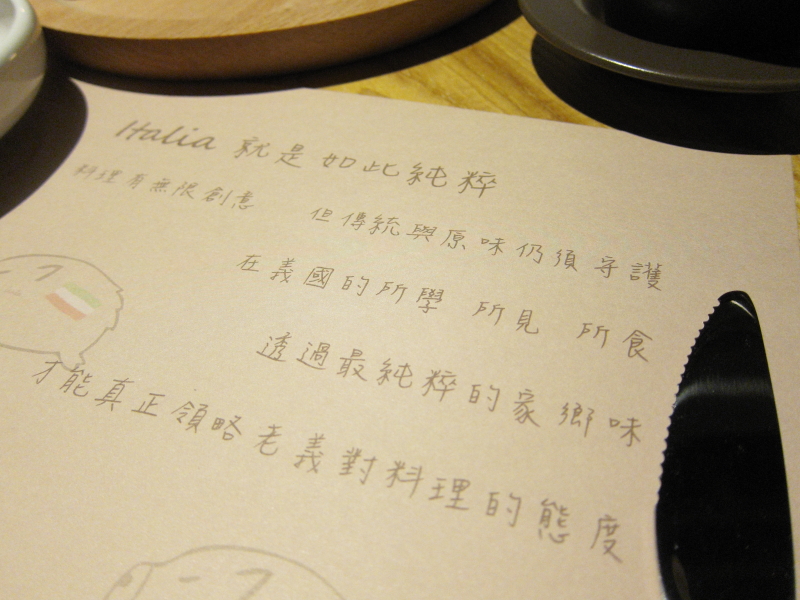 Italia 就是如此純粹
料理有無限創意 但傳統與原味仍須守護
在義國的所學 所見 所食
透過最純粹的家鄉味
才能真正領略老義對料理的態度